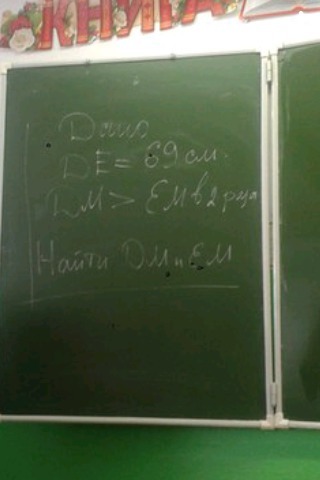 КНИГА
Дано
DE = 69 см.
DM > EM в 2 раза
Найти DM и EM